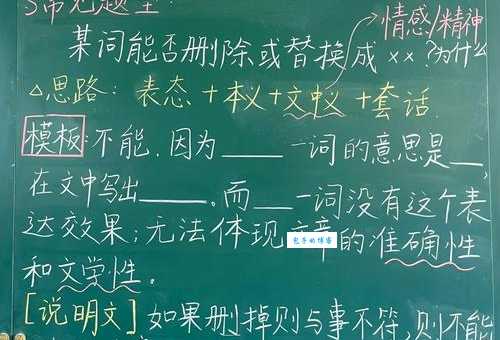 5常见题型:
情感/精神
某词能否删除或替换成××?为什么
△思路: 表态+本义+文中义+套话.
模板:不能.因为____一词的意思是__,
在文中写出____。而__一词没有这个表
达效果;无法体现文章的准确性
和文学性。
[说明文]如果删掉则与事不符,则不能